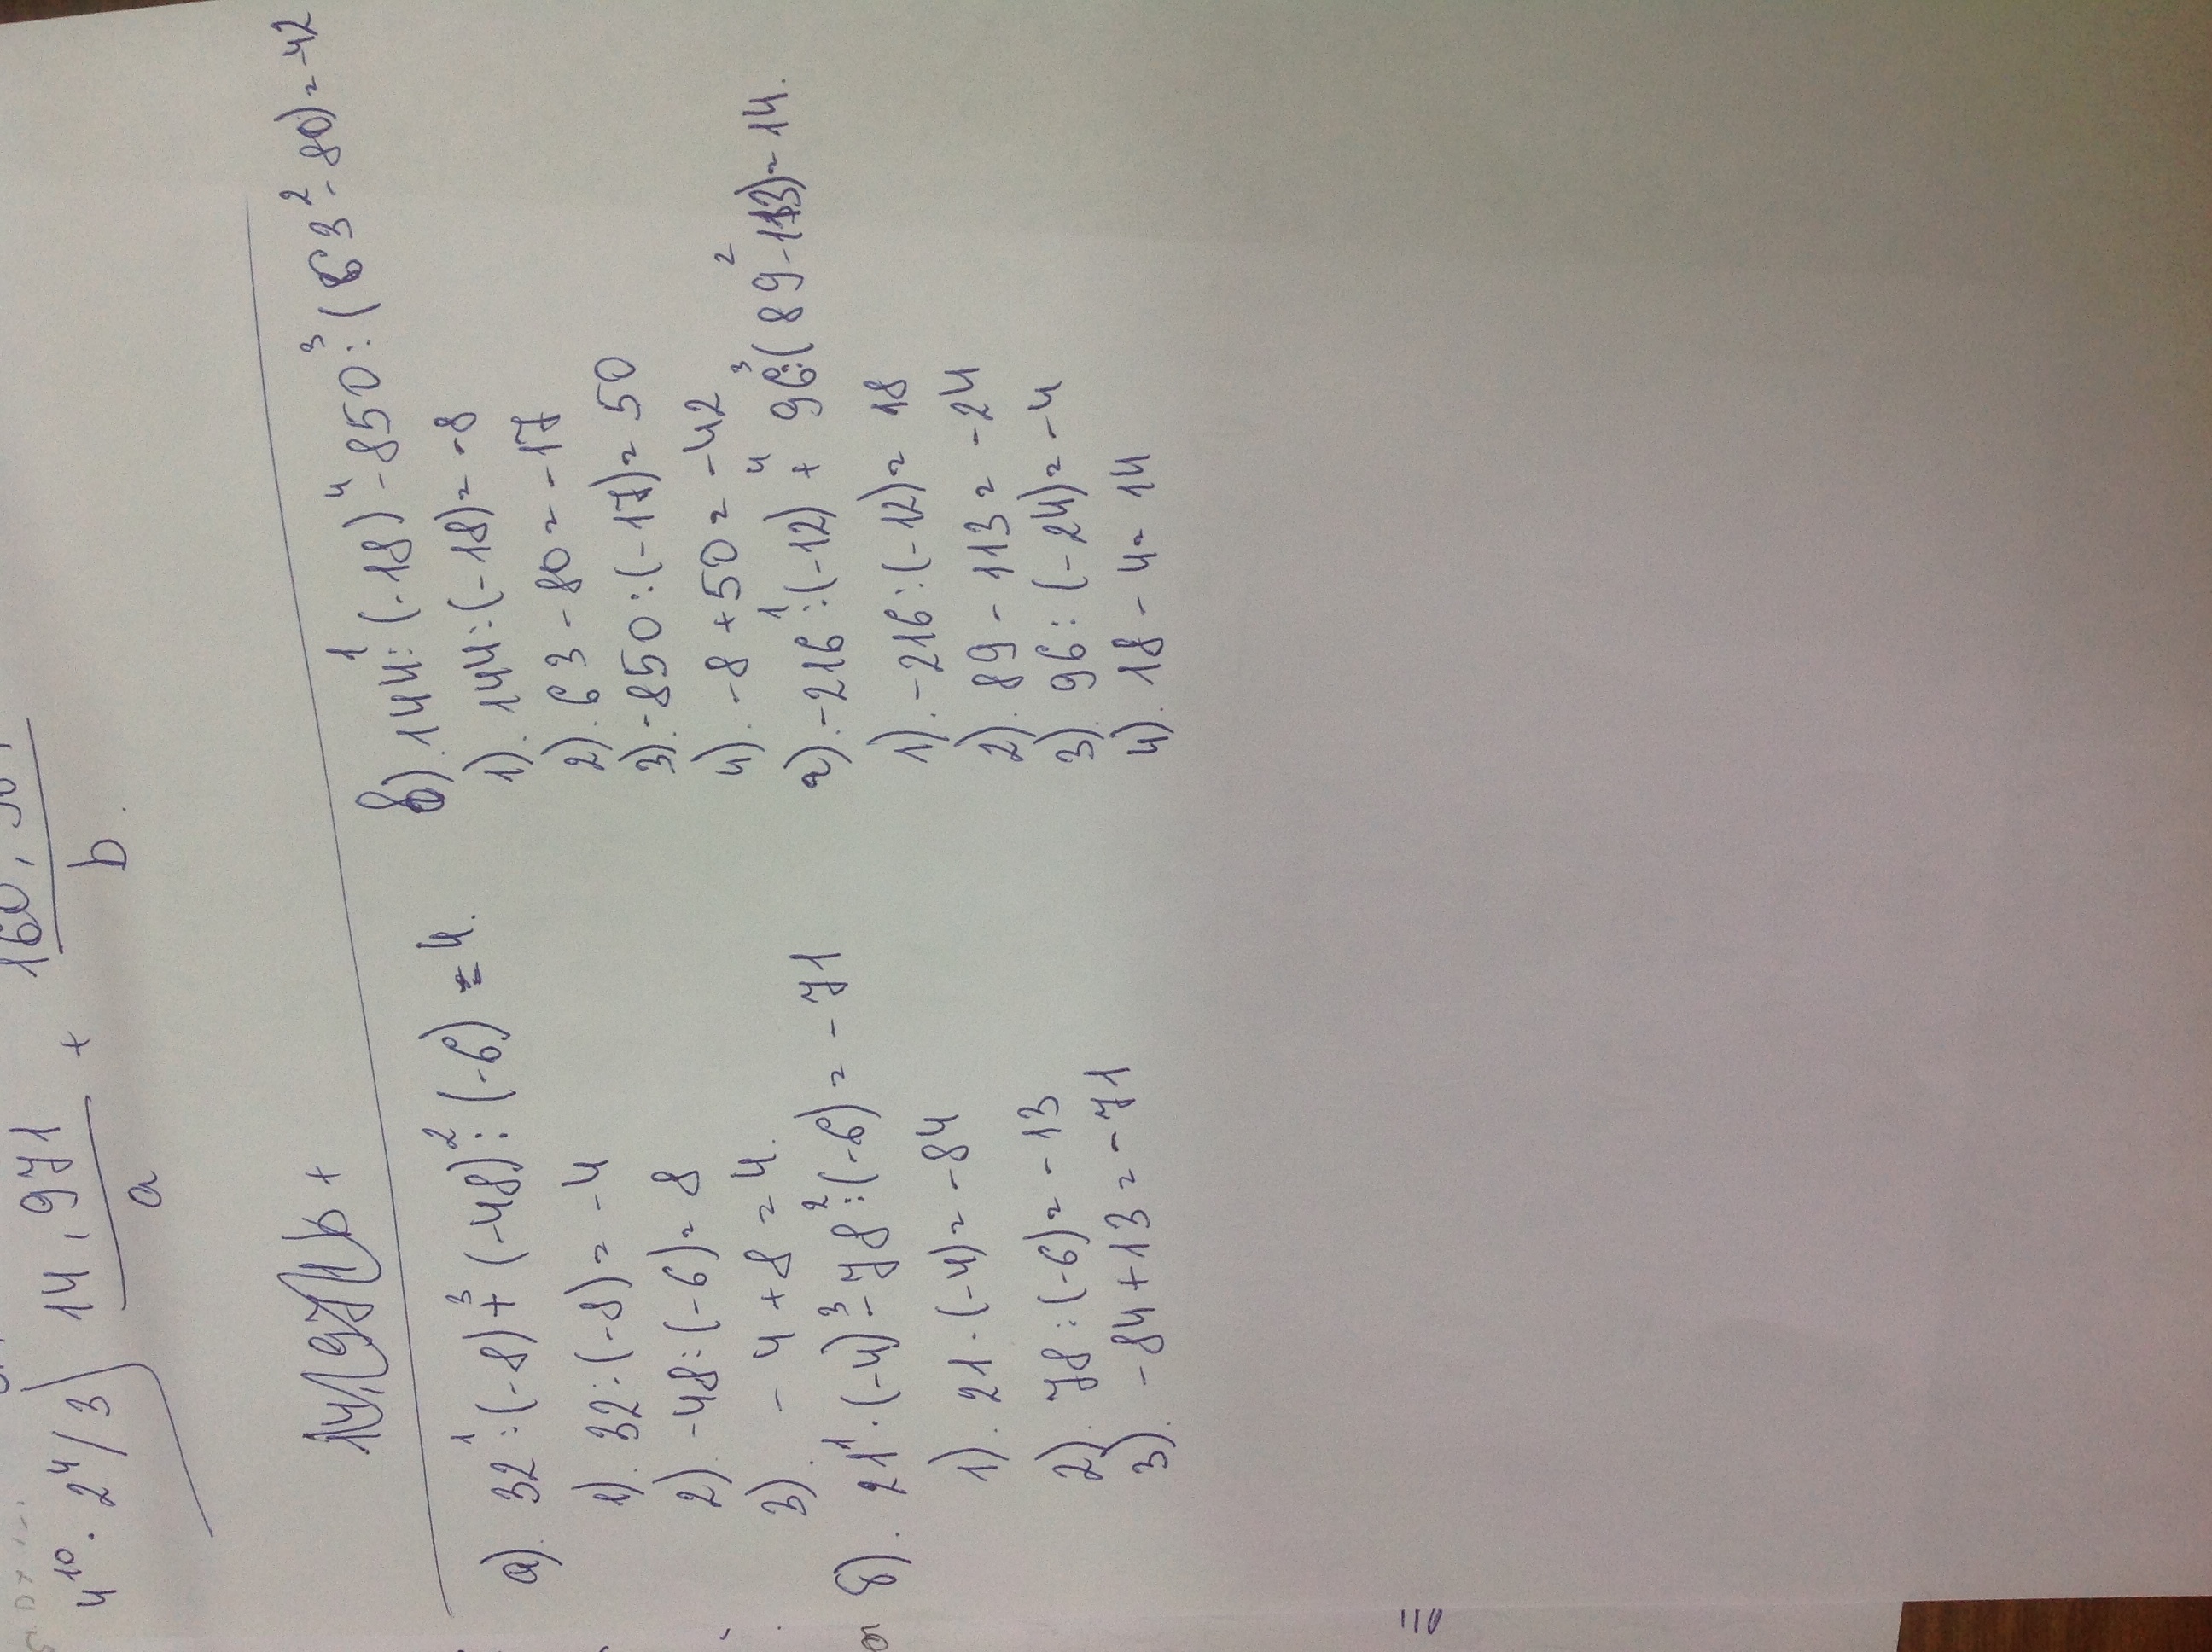 4¹⁰ · 2⁴/3) 14,971 + 160,
a b.
b +
а). 32 :¹ (-8) +³ (-48) :² (-6) = 4.
1). 32 : (-8) = -4
2). -48 : (-6) = 8
3). -4 + 8 = 4.
б). 21 ·¹ (-4) -³ 78 :² (-6) = -71
1). 21 · (-4) = -84
2). 78 : (-6) = -13
3). -84 + 13 = -71
в). 144 :¹ (-18) -⁴ 850 :³ (63 -² 80) = -42
1). 144 : (-18) = -8
2). 63 - 80 = -17
3). -850 : (-17) = 50
4). -8 + 50 = -42
г). -216 :¹ (-12) +⁴ 96 :³ (89 -² 113) = 14.
1). -216 : (-12) = 18
2). 89 - 113 = -24
3). 96 : (-24) = -4
4). 18 - 4 = 14